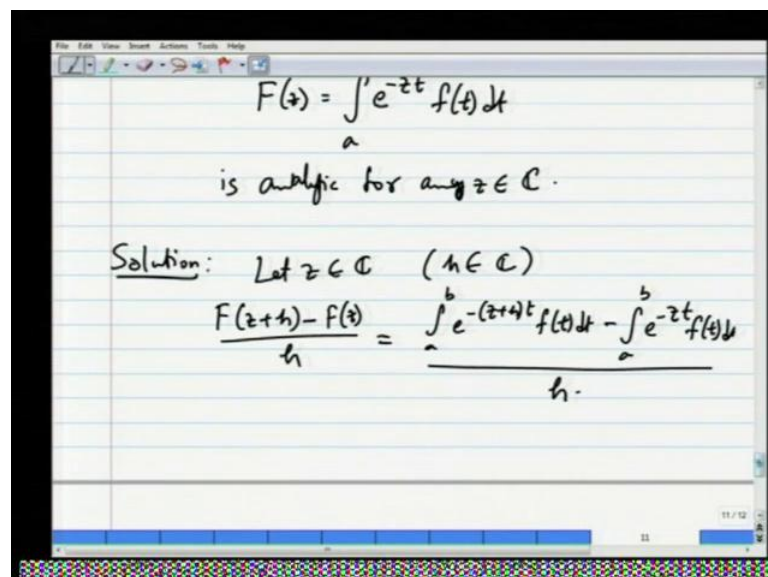 File Edit View Insert Actions Tools Help
F(z) = ∫ₐ e^{-zt} f(t) dt
is analytic for any z ∈ ℂ.
Solution: Let z ∈ ℂ (h ∈ ℂ)
\frac{F(z+h) - F(z)}{h} = \frac{∫ₐᵇ e^{-(z+h)t} f(t) dt - ∫ₐᵇ e^{-zt} f(t) dt}{h}.
11 / 12
11